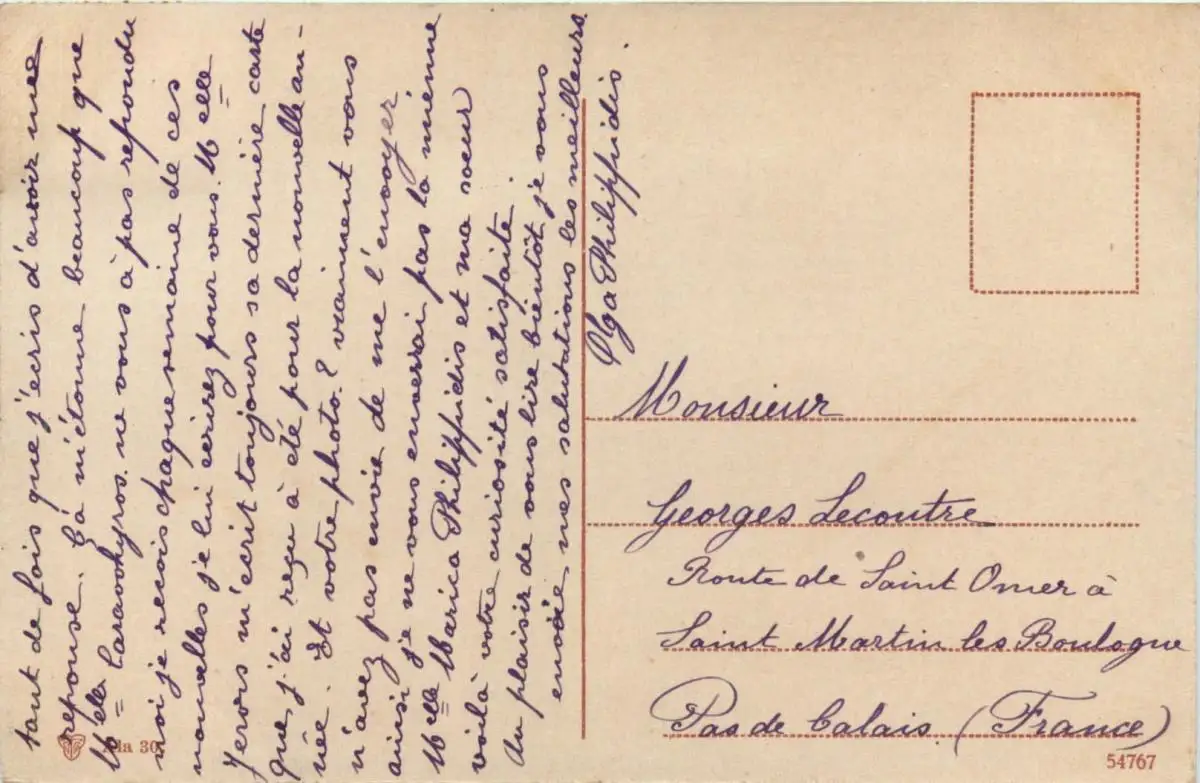 tant de fois que j'écris d'avoir une
reponse. Ça m'étonne beaucoup que
Melle Caravokyros ne vous à pas repondu
moi je recois chaque semaine de ces
nouvelles je lui ecrirez pour vous. Melle
Jervois m'écrit toujours sa dernière carte
que j'ai reçu à été pour la nouvelle an-
née. Et votre photo? vraiment vous
n'avez pas envie de me l'envoyer
ainsi je ne vous enverrai pas la mienne
Melle Marica Philippidis et ma soeur
voilà votre curiosité satisfaite.
Au plaisir de vous lire bientôt je vous
envoie mes salutations les meilleurs.
Olga Philippidis.
Monsieur
Georges Lecoutre
Route de Saint Omer à
Saint Martin les Boulogne
Pas de Calais (France)
30
54767